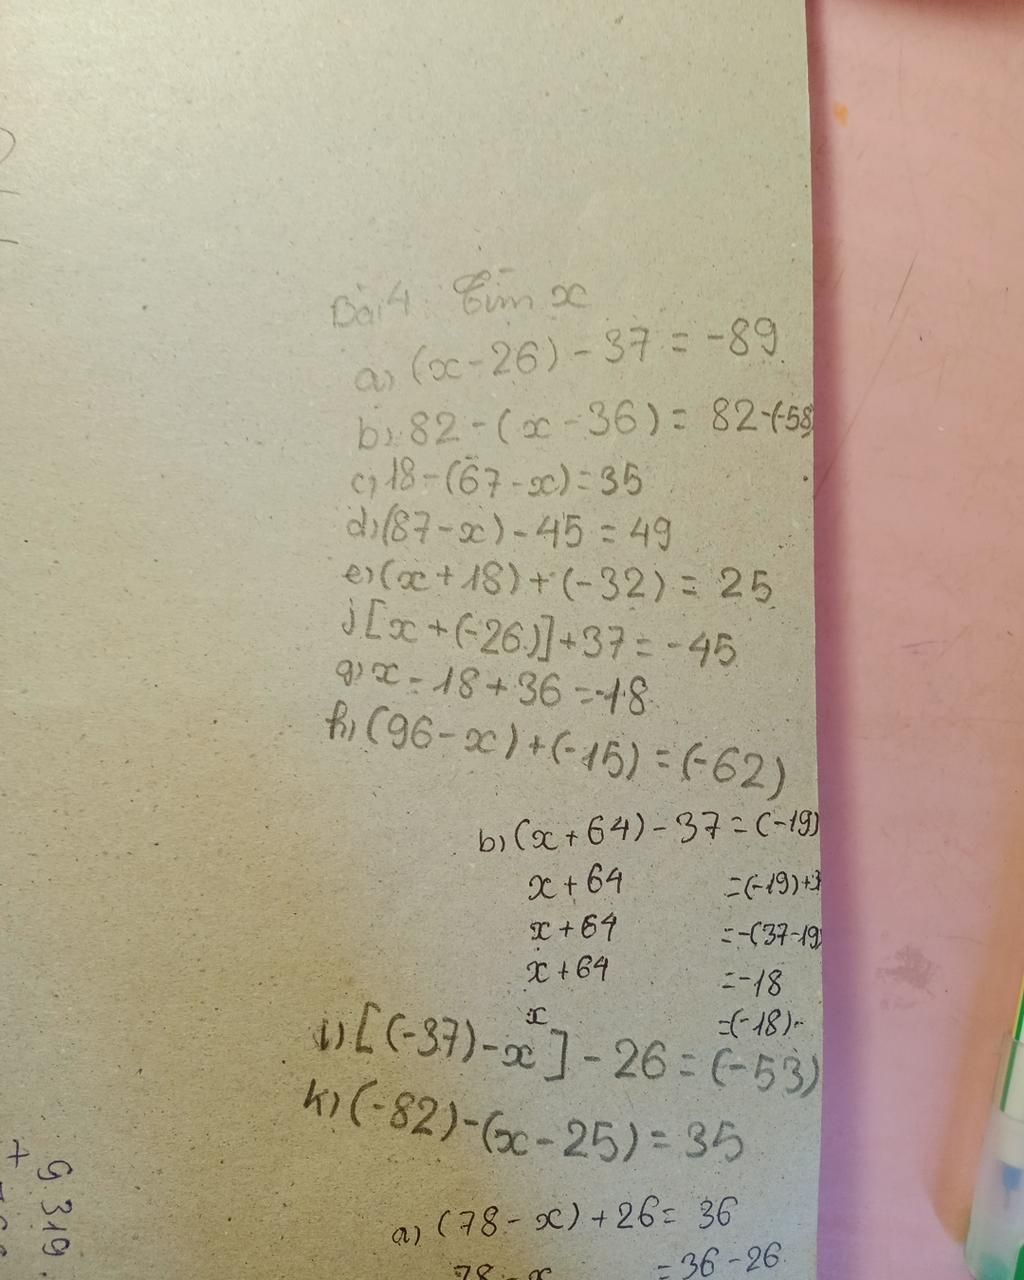 Bài 4 Tìm x
a) (x-26) - 37 = -89
b) 82 - (x - 36) = 82-(-58)
c) 18-(67-x)=35
d) (87-x)-45 = 49
e) (x+18)+(-32) = 25
j [x+(-26)]+37=-45
g) x-18+36=-18
h) (96-x)+(-15)=(-62)
b) (x+64)-37=(-19)
x+64 =(-19)+3
x+64 =-(37-19)
x+64 =-18
x =(-18)-
i) [(-37)-x]-26=(-53)
k) (-82)-(x-25)=35
a) (78-x)+26= 36
78-x =36-26
+ 9319